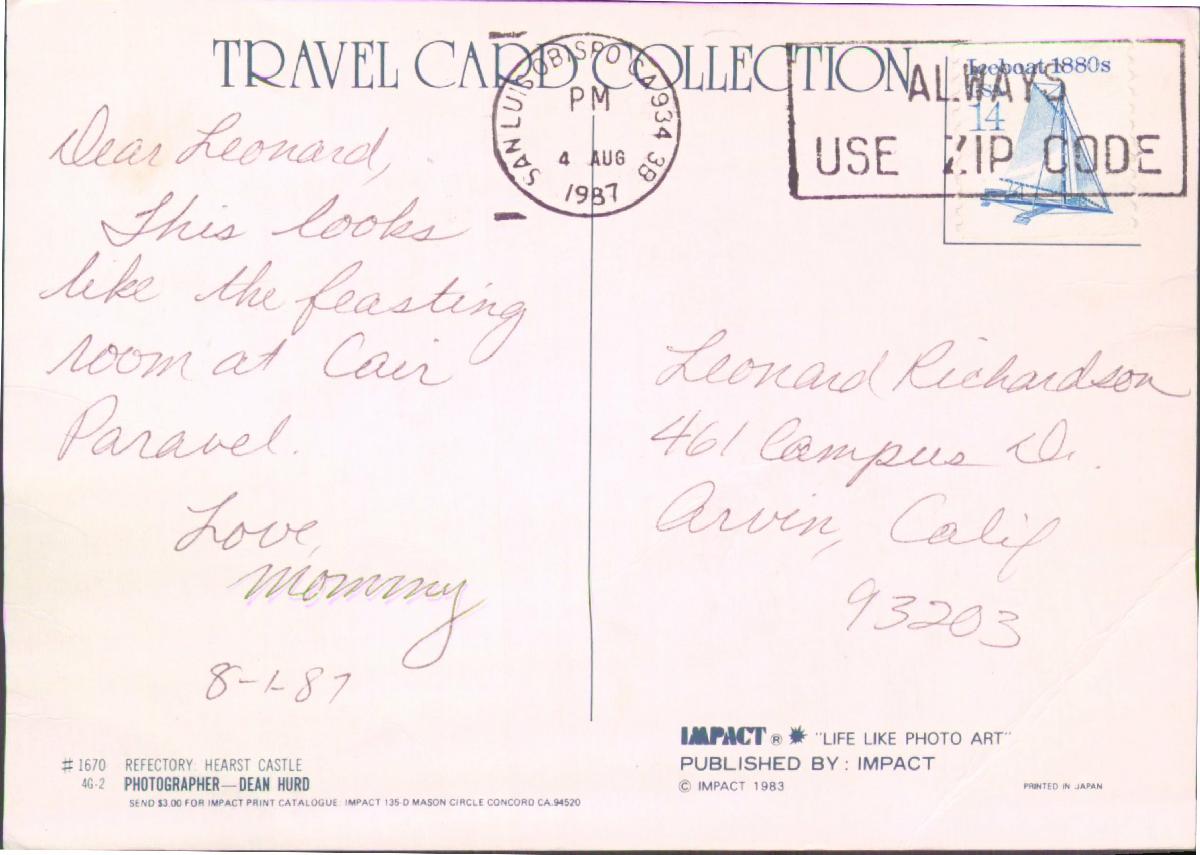 TRAVEL CARD COLLECTION
SAN LUIS OBISPO CA 934 3B
PM
4 AUG
1987
ALWAYS
USE ZIP CODE
Iceboat 1880s
USA
14
Dear Leonard,
This looks
like the feasting
room at Cair
Paravel.
Love,
Mommy
8-1-87
Leonard Richardson
461 Campus Dr.
Arvin, Calif
93203
#1670 REFECTORY: HEARST CASTLE
4G-2 PHOTOGRAPHER—DEAN HURD
SEND $3.00 FOR IMPACT PRINT CATALOGUE: IMPACT 135-D MASON CIRCLE CONCORD CA. 94520
IMPACT ® "LIFE LIKE PHOTO ART"
PUBLISHED BY: IMPACT
© IMPACT 1983
PRINTED IN JAPAN